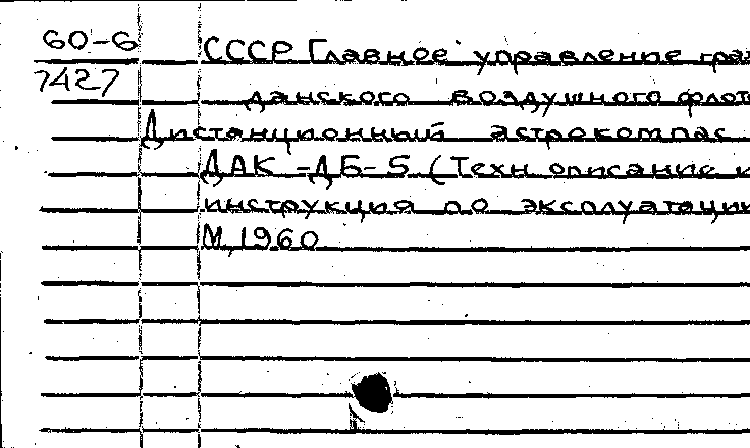 60-6 СССР Главное управление граж
7427 данского воздушного флот
Дистанционный астрокомпас
ДАК-ДБ-5 (Техн. описание и
инструкция по эксплуатации
М, 1960